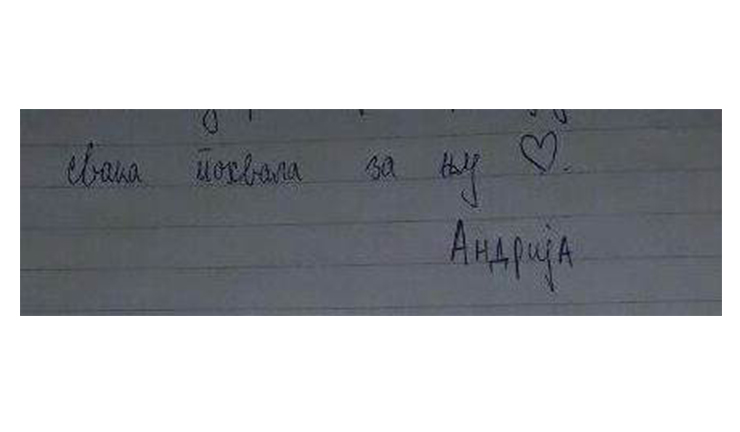 свака похвала за њу ♡.
Андрија